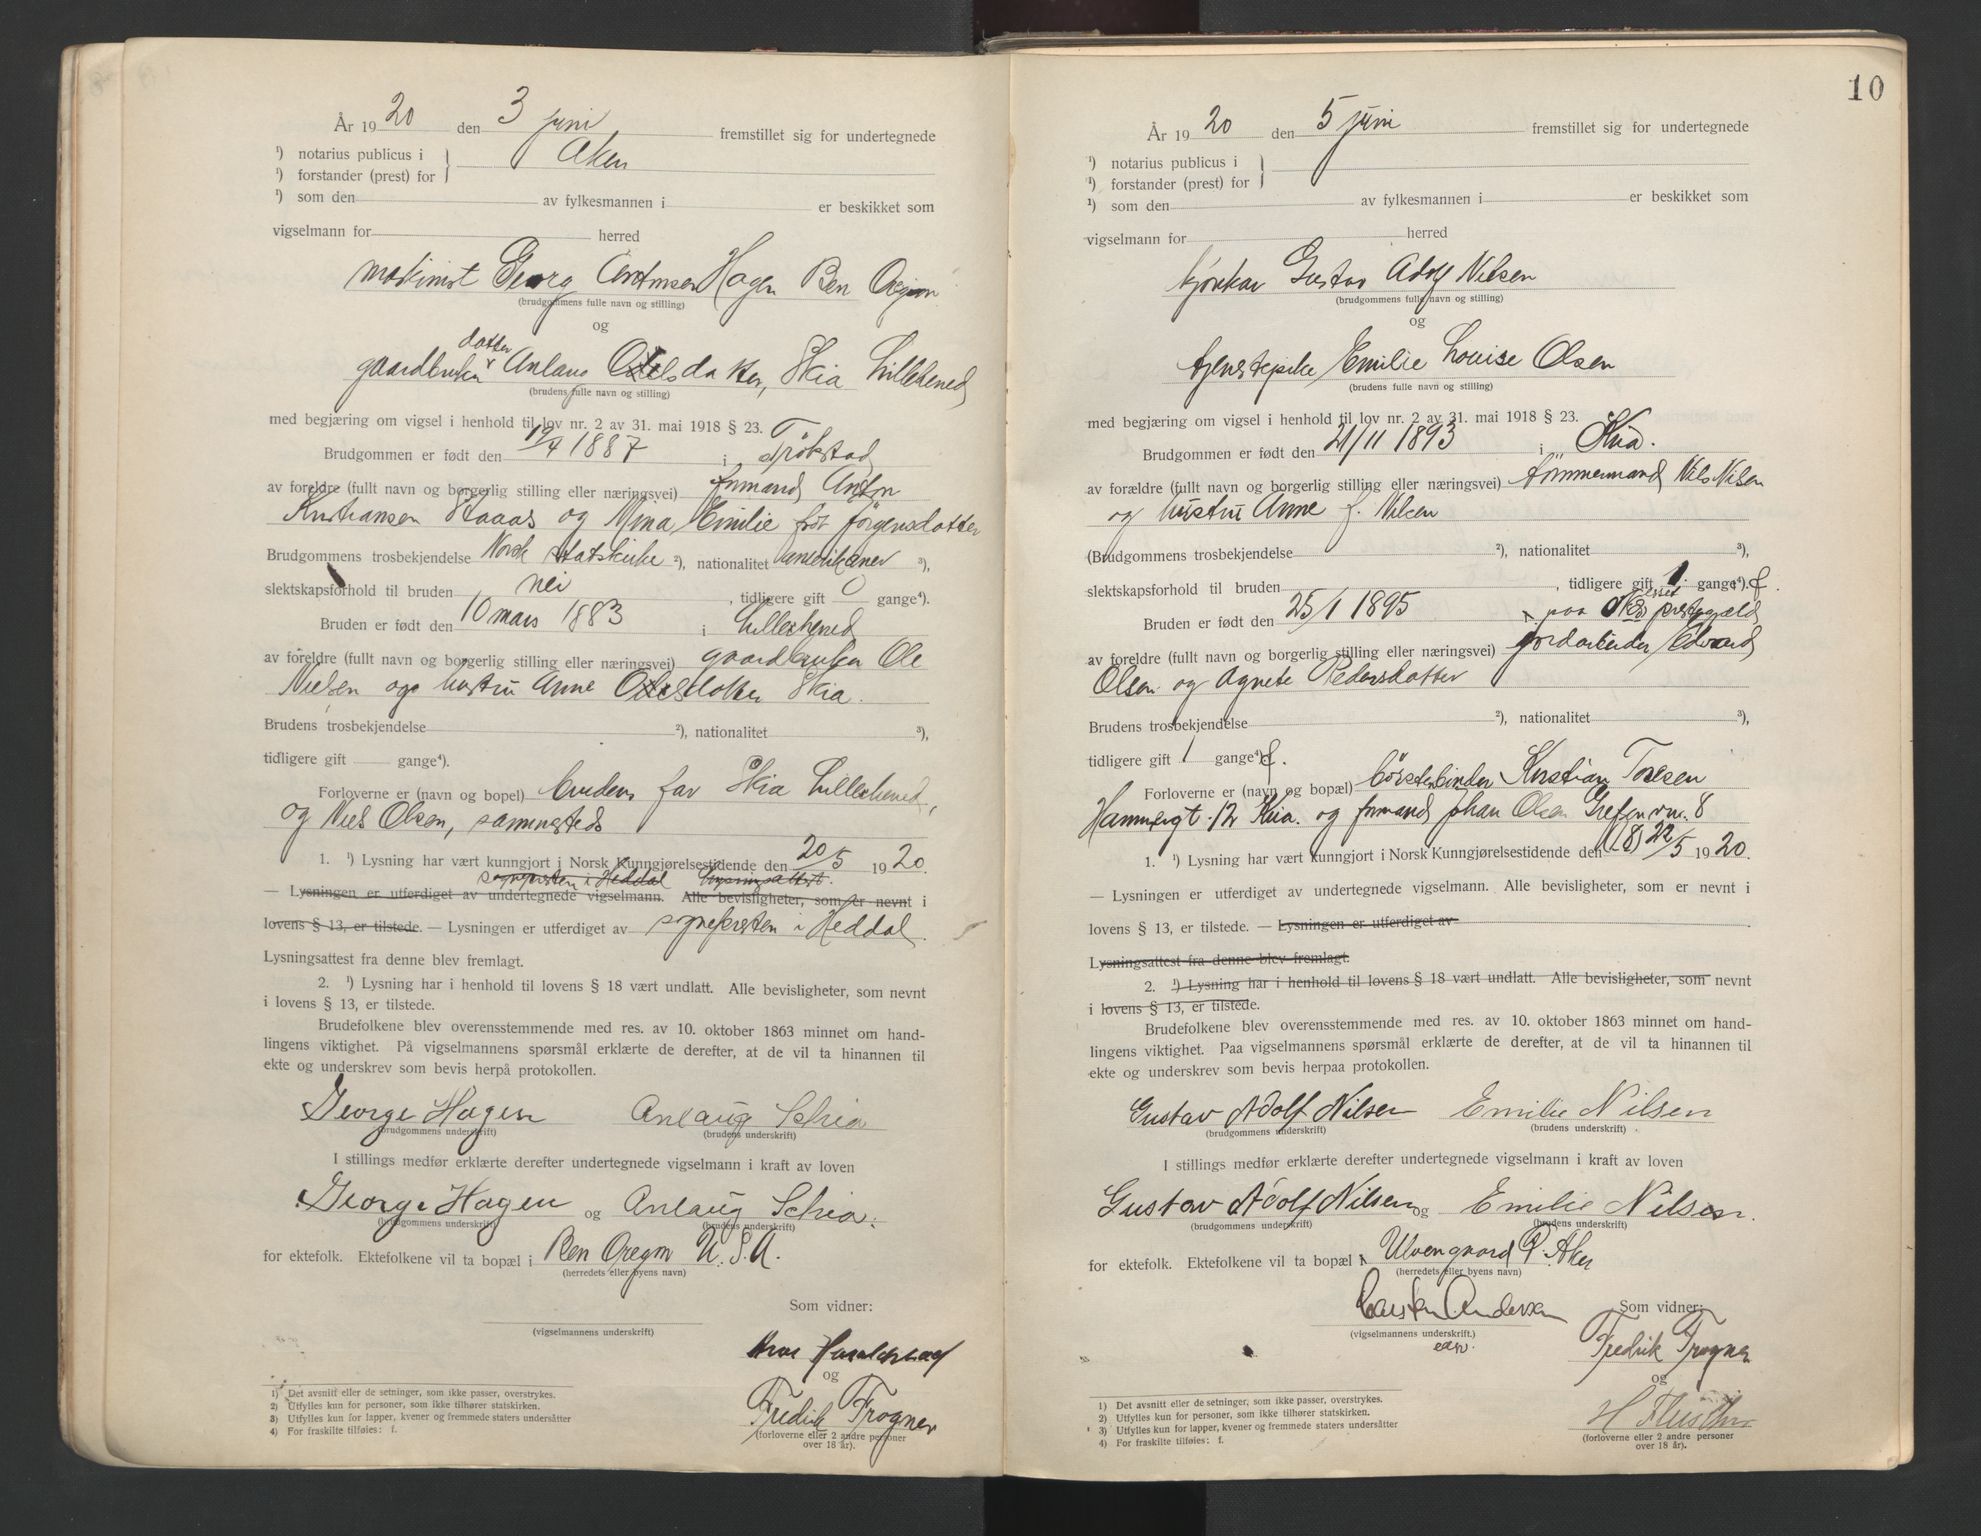 År 1920 den 3 juni fremstillet sig for undertegnede
¹) notarius publicus i Aker
¹) forstander (prest) for
¹) som den av fylkesmannen i er beskikket som
vigselmann for herred
maskinist Georg Hagen Ben Oregon
(brudgommens fulle navn og stilling)
og
datter
gaardbruker Anlaug Olelsdatter, Skia Lilleherred
(brudens fulle navn og stilling)
med begjæring om vigsel i henhold til lov nr. 2 av 31. mai 1918 § 23.
Brudgommen er født den 19/4 1887 i Trökstad
av foreldre (fullt navn og borgerlig stilling eller næringsvei) formand Anton
Kristiansen Staaas og Mina Emilie föt Jörgensdatter
Brudgommens trosbekjendelse Norsk statskirke ²), nationalitet amerikaner ³),
slektskapsforhold til bruden nei, tidligere gift 0 gange⁴).
Bruden er født den 10 mars 1883 i Lilleherred
av foreldre (fullt navn og borgerlig stilling eller næringsvei) gaardbruker Ole
Nielsen og hustru Anne Olesdatter Skia.
Brudens trosbekjendelse ²), nationalitet ³),
tidligere gift gange⁴).
Forloverne er (navn og bopel) brudens far Skia Lilleherred,
og Niels Olsen, sammesteds
1. ¹) Lysning har vært kunngjort i Norsk Kunngjørelsestidende den 20/5 1920.
sognepresten i Heddal lysningsattest.
— Lysningen er utferdiget av undertegnede vigselmann. Alle bevisligheter, som er nevnt i
lovens § 13, er tilstede. — Lysningen er utferdiget av sognepresten i Heddal.
Lysningsattest fra denne blev fremlagt.
2. ¹) Lysning har i henhold til lovens § 18 vært undlatt. Alle bevisligheter, som nevnt
i lovens § 13, er tilstede.
Brudefolkene blev overensstemmende med res. av 10. oktober 1863 minnet om hand-
lingens viktighet. På vigselmannens spørsmål erklærte de derefter, at de vil ta hinannen til
ekte og underskrev som bevis herpå protokollen.
George Hagen Anlaug Schia
(brudgommens underskrift) (brudens underskrift)
I stillings medfør erklærte derefter undertegnede vigselmann i kraft av loven
George Hagen og Anlaug Schia.
(brudgommens underskrift) (brudens underskrift)
for ektefolk. Ektefolkene vil ta bopæl i Ben Oregon U.S.A.
(herredets eller byens navn)
Som vidner:
(vigselmannens underskrift)
og
Fredrik Trogner
(forloverne eller 2 andre personer
over 18 år).
1) Det avsnitt eller de setninger, som ikke passer, overstrykes.
2) Utfylles kun for personer, som ikke tilhører statskirken.
3) Utfylles kun for lapper, kvener og fremmede staters undersåtter
4) For fraskilte tilføies: f.
10
År 1920 den 5 juni fremstillet sig for undertegnede
¹) notarius publicus i
¹) forstander (prest) for
¹) som den av fylkesmannen i er beskikket som
vigselmann for herred
kjörekar Gustav Adolf Nilsen
(brudgommens fulle navn og stilling)
og
tjenestepike Emilie Louise Olsen
(brudens fulle navn og stilling)
med begjæring om vigsel i henhold til lov nr. 2 av 31. mai 1918 § 23.
Brudgommen er født den 21/11 1893 i Kria.
av forældre (fullt navn og borgerlig stilling eller næringsvei) tömmermand Nils Nilsen
og hustru Anne f. Nilsen
(Brudgommens trosbekjendelse ²), nationalitet ³),
slektskapsforhold til bruden, tidligere gift 1 gange⁴) f.
Bruden er født den 25/1 1895 paa Nes prestegjeld
av foreldre (fullt navn og borgerlig stilling eller næringsvei) jordarbeider Edvard
Olsen og Agnete Pedersdatter
Brudens trosbekjendelse ²), nationalitet ³),
tidligere gift 1 gange⁴) f.
Forloverne er (navn og bopæl) börstenbinder Kristian Toresen
Hammergt. 12 Kria. og formand Johan Olsen Grefsenvn. 8
1. ¹) Lysning har vært kunngjort i Norsk Kunngjørelsestidende den (18) 22/5 1920.
— Lysningen er utferdiget av undertegnede vigselmann. Alle bevisligheter, som er nevnt i
lovens § 13, er tilstede. — Lysningen er utferdiget av
Lysningsattest fra denne blev fremlagt.
2. ¹) Lysning har i henhold til lovens § 18 vært undlatt. Alle bevisligheter, som nevnt
i lovens § 13, er tilstede.
Brudefolkene blev overensstemmende med res. av 10. oktober 1863 minnet om hand-
lingens viktighet. Paa vigselmannens spørsmål erklærte de derefter, at de vil ta hinannen til
ekte og underskrev som bevis herpaa protokollen.
Gustav Adolf Nilsen Emilie Nilsen
(brudgommens underskrift) (brudens underskrift)
I stillings medfør erklærte derefter undertegnede vigselmann i kraft av loven
Gustav Adolf Nilsen og Emilie Nilsen.
(brudgommens underskrift) (brudens underskrift)
for ektefolk. Ektefolkene vil ta bopæl i Ulvengaard Ö. Aker
(herredets eller byens navn)
Carsten Andersen Som vidner:
(vigselmannens underskrift.)
Fredrik Trogner
og
(forloverne eller 2 andre personer
over 18 år).
1) Det avsnitt eller de setninger, som ikke passer, overstrykes.
2) Utfylles kun for personer, som ikke tilhører statskirken.
3) Utfylles kun for lapper, kvener og fremmede staters undersåtter
4) For fraskilte tilføies: f.